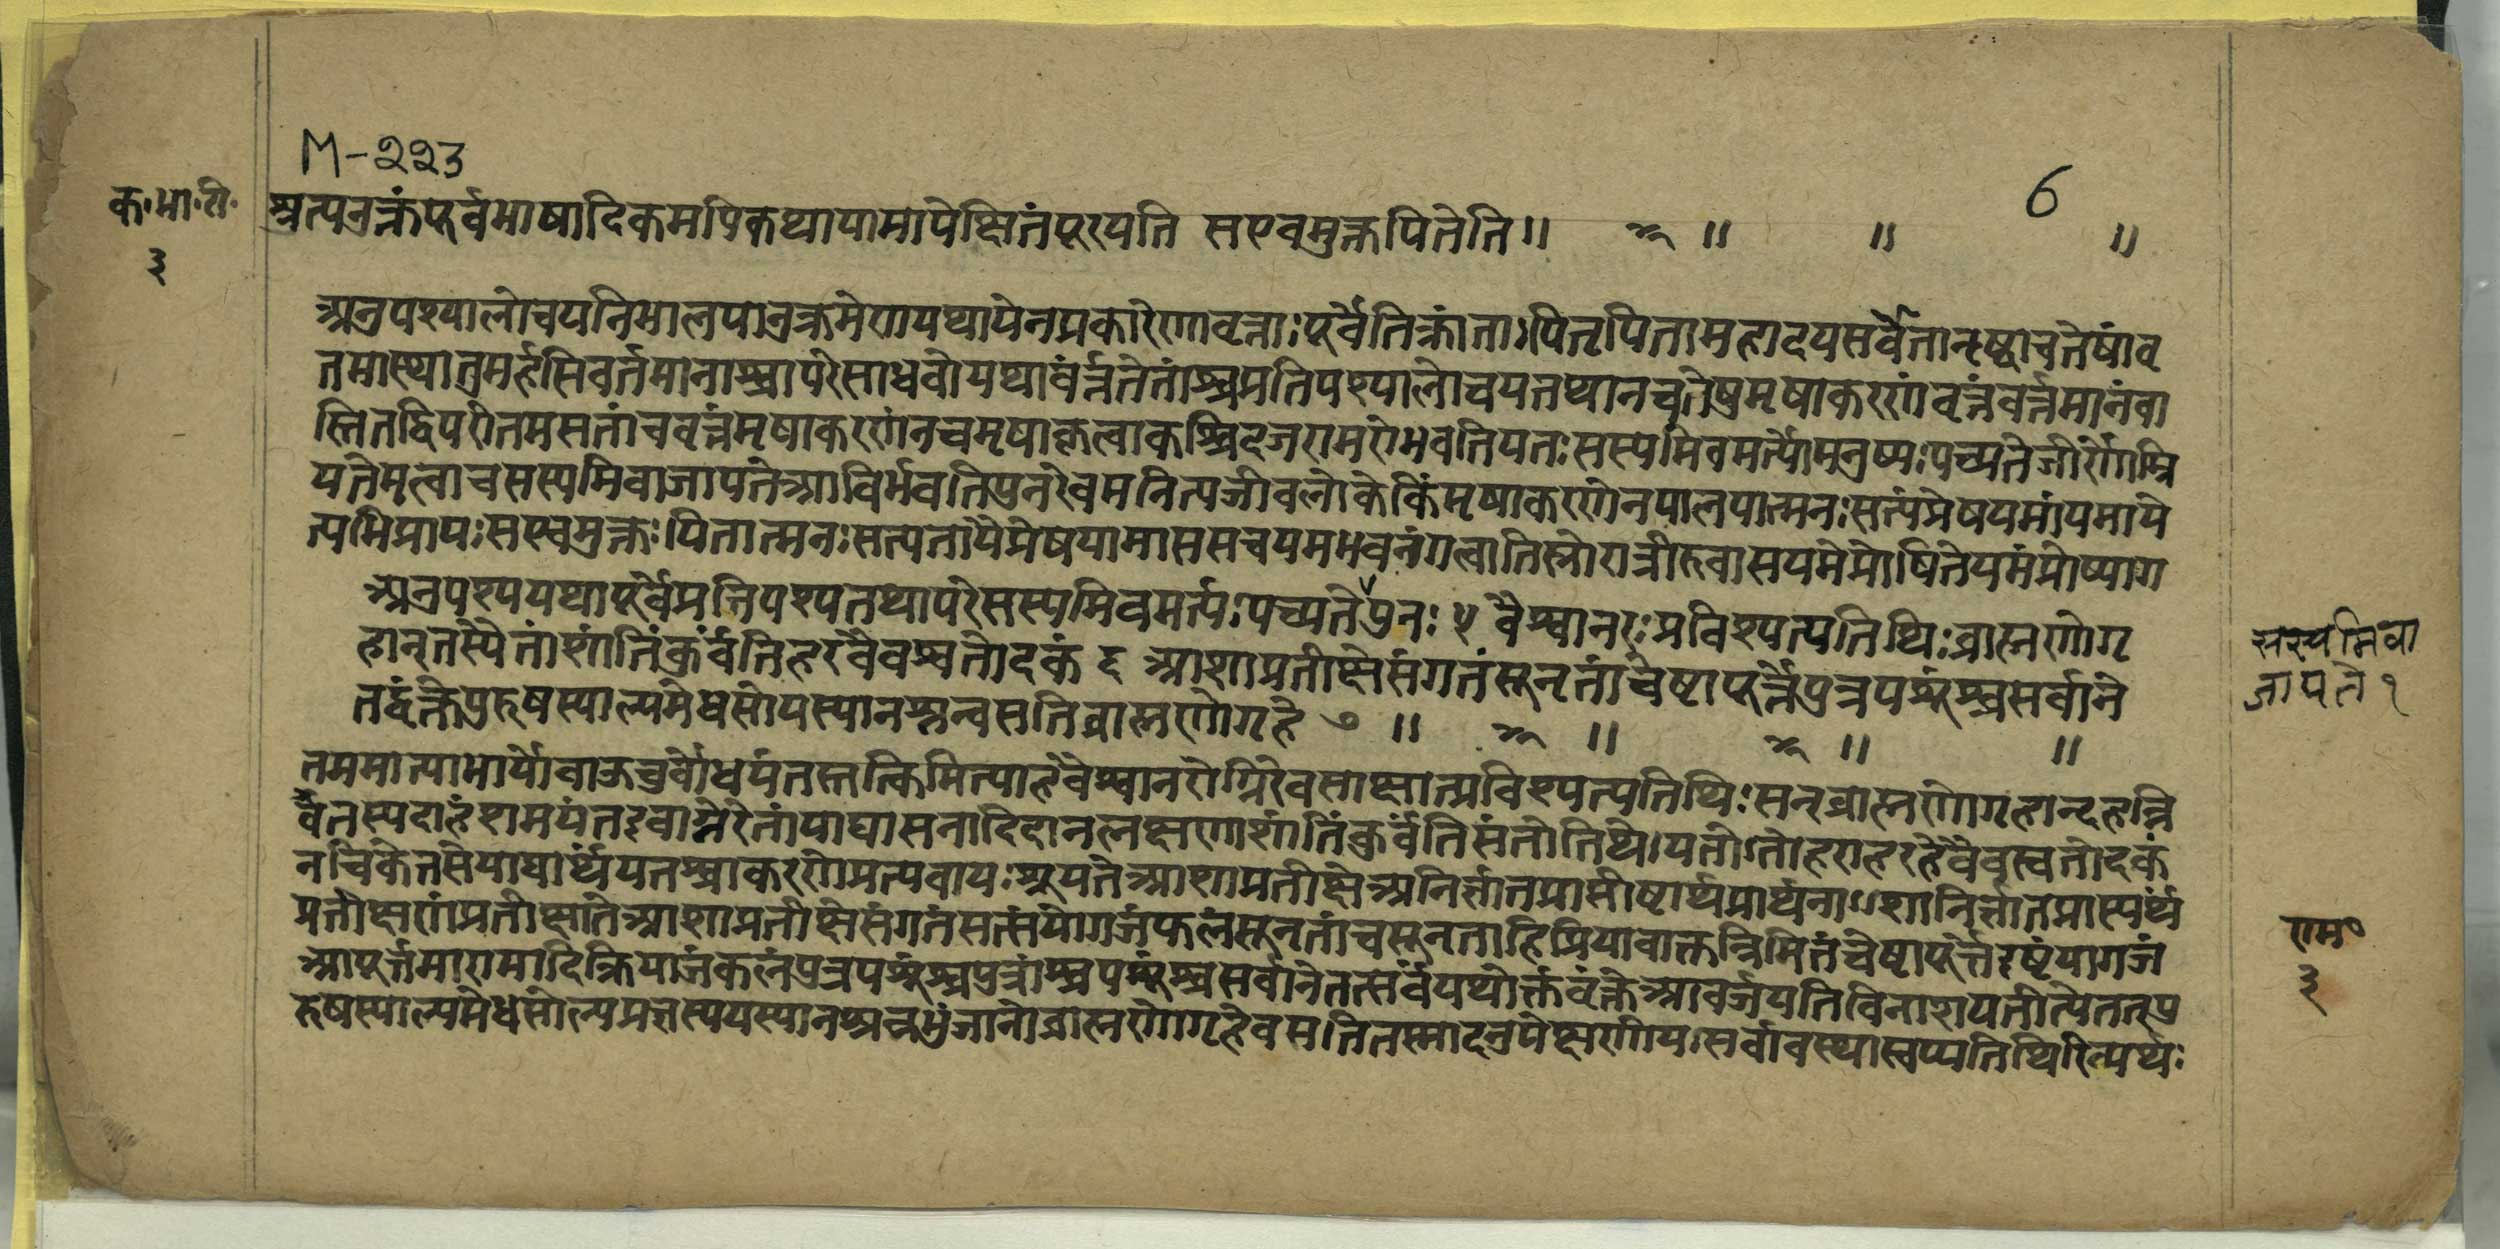 M-223
6
क॰भा॰टी॰
३
श्रुत्यनुक्तंपूर्वभाषादिकमपिकथायामापेक्षितंपूरयति सएवमुक्तपितेति॥ ॥ ॥ ॥
अनुपश्यालोचयनिभालयानुक्रमेणयथायेनप्रकारेणवृत्ताःपूर्वेतिक्रांताःपितृपितामहादयसर्वेतान्दृष्ट्वाचतेषांवृ
तमास्थातुमर्हसिवर्तमानाश्चापरेसाधवोयथावंर्त्ततेतांश्चप्रतिपश्यालोचयतथानचतेषुमृषाकरणंवृत्तंवर्त्तमानंवा
स्तितद्विपरीतमसतांचवृत्तंमृषाकरणंनचमृषाकृत्वाकश्चिदजरामरोभवतियतःसस्यमिवमर्त्योमनुष्यःपच्यतेजीर्णोम्रि
यतेमृत्वाचसस्यमिवाजायतेआविर्भवतिपुनरेवमनित्यजीवलोकेकिंमृषाकरणेनपालयात्मनःसत्यंप्रेषयमांयमाये
त्यभिप्रायःसएवमुक्तःपितात्मनःसत्यतायैप्रेषयामाससचयमभवनंगत्वातिस्रोरात्रीरुवासयमेप्रोषितेयमंप्रोष्याग
अनुपश्ययथापूर्वेप्रतिपश्यतथापरेसस्यमिवमर्त्यःपच्यतेपुनः ५ वैश्वानरःप्रविशत्यतिथिःब्राह्मणोगृ
हान्तस्यैतांशांतिंकुर्वंतिहरवैवश्वतोदकं ६ आशाप्रतीक्षेसंगतंसूनृतांचेष्टापूर्त्तेपुत्रपशूंश्चसर्वाने
तद्वृंक्तेपुरुषस्याल्पमेधसोयस्यानश्नन्वसतिब्राह्मणोगृहे ७ ॥ ॥ ॥ ॥
सस्यमिवा
जायते १
तममात्याभार्योवाऊचुर्वोधयंतस्तत्किमित्याहवैश्वानरोग्निरेवसाक्षात्प्रविश्यत्यतिथिःसन्ब्राह्मणोगृहान्दहन्नि
वैतस्यदाहंशमयंतइवाग्नेरेतांपाद्यासनादिदानलक्षणांशांतिंकुर्वंतिसंतोतिथेःयतोऽतोहराहरहेवैवस्वतोदकं
नचिकेतसेपाद्यार्थंयतश्चाकरणेप्रत्यवायःश्रूयतेआशाप्रतीक्षेअनिर्ज्ञातप्राप्तीष्टार्थप्रार्थनाऽऽशानिर्ज्ञातप्राप्यर्थ
प्रतीक्षणंप्रतीक्षातेआशाप्रतीक्षेसंगतंसत्संयोगजंफलंसूनृतांचसूनृताहिप्रियावाक्तन्निमित्तंचेष्टापूर्त्तेइष्टंयागजं
आपूर्त्तमारामादिक्रियाजंफलंपुत्रपशूंश्चपुत्रांश्चपशूंश्चसर्वानेतत्सर्वंयथोक्तंवृंक्तेआवर्जयतिविनाशयतीत्येतत्पु
रुषस्याल्पमेधसोल्पप्रज्ञस्ययस्यानश्नन्नभुंजानोब्राह्मणोगृहेवसतितस्मादनुपेक्षणीयःसर्वावस्थास्वप्यतिथिरित्यर्थः
राम॰
३